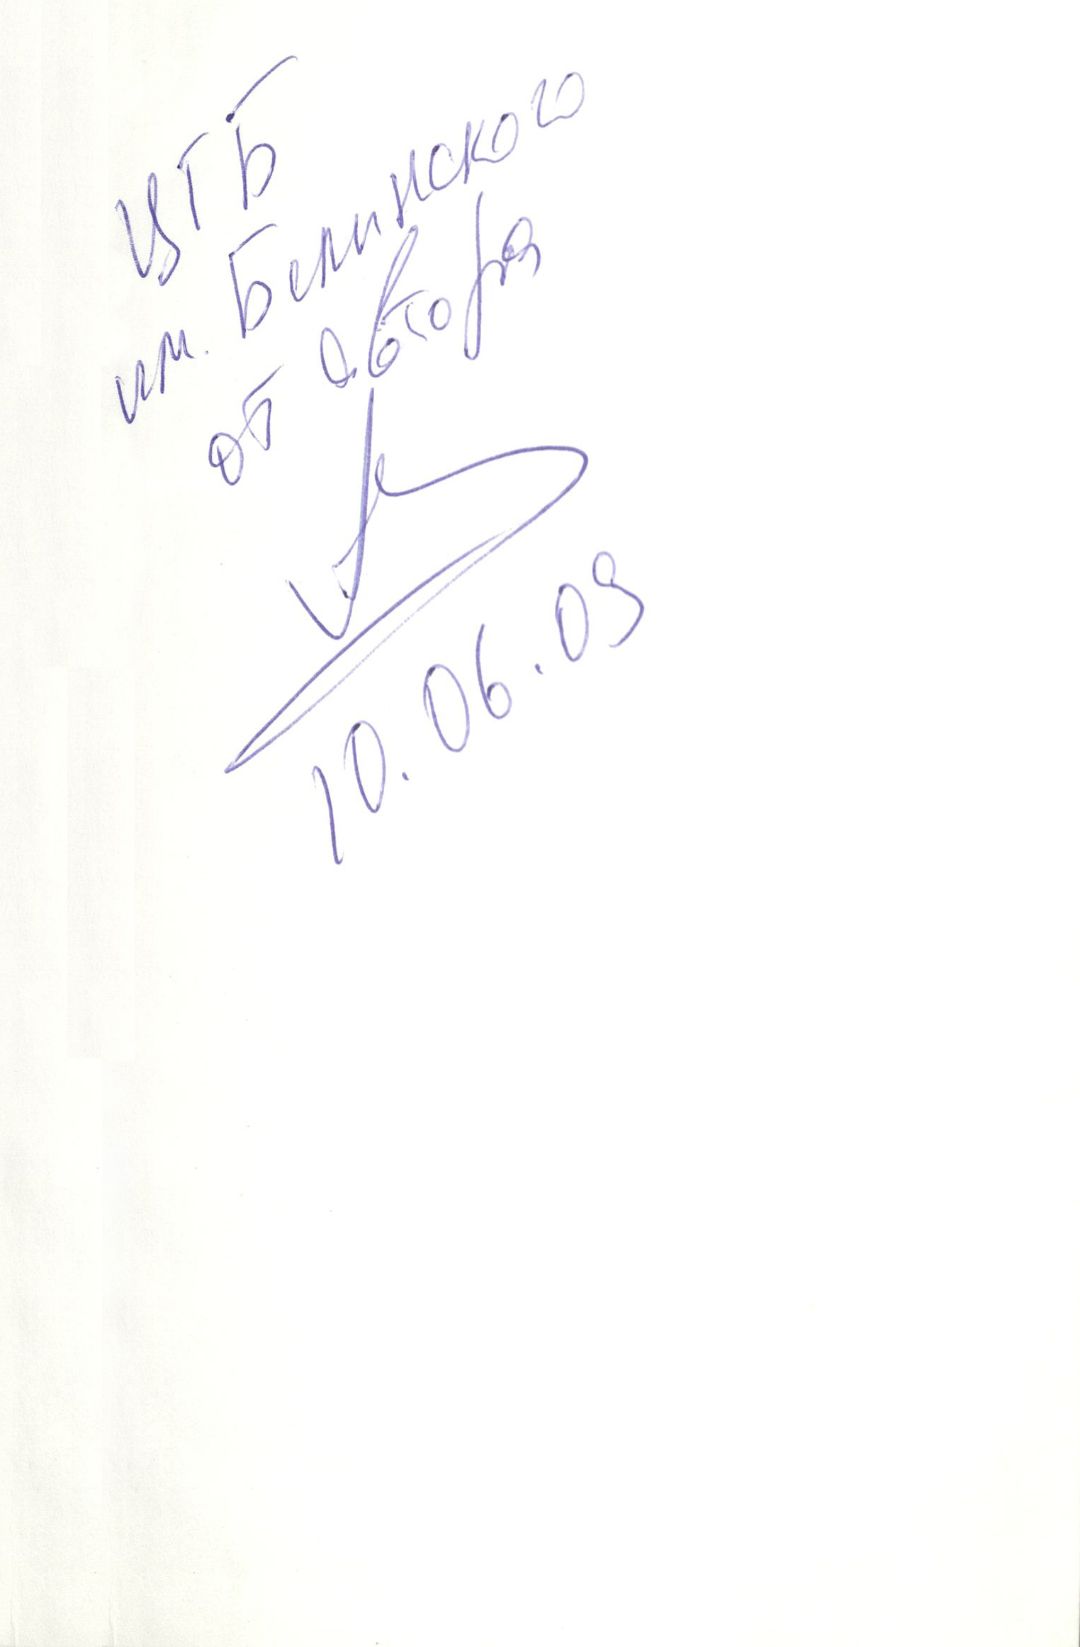 ЦГБ
им. Белинского
от автора
10.06.09